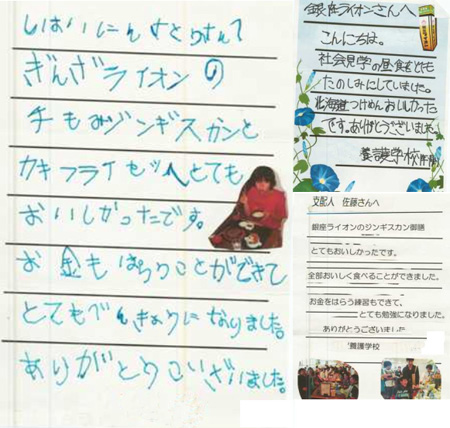 しはいにんさとうさんへ
ぎんざライオンの
手もみジンギスカンと
カキフライセットとても
おいしかったです。
お金もはらうことができて
とてもべんきょうになりました。
ありがとうございました。
銀座ライオンさんへ
こんにちは。
社会見学の昼食をとても
たのしみにしていました。
北海道つけめんおいしかった
です。ありがとうございました。
養護学校
支配人 佐藤さんへ
銀座ライオンのジンギスカン御膳
とてもおいしかったです。
全部おいしく食べることができました。
お金をはらう練習もできて、
とても勉強になりました。
ありがとうございました
養護学校